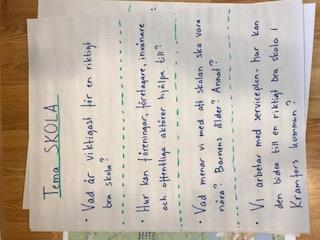 Tema SKOLA
• Vad är viktigast för en riktigt
bra skola?
• Hur kan föreningar, företagare, invånare
och offentliga aktörer hjälpa till?
• Vad menar vi med att skolan ska vara
nära? Barnens ålder? Annat?
• Vi arbetar med serviceplan- hur kan
den bidra till en riktigt bra skola i
Kramfors kommun?